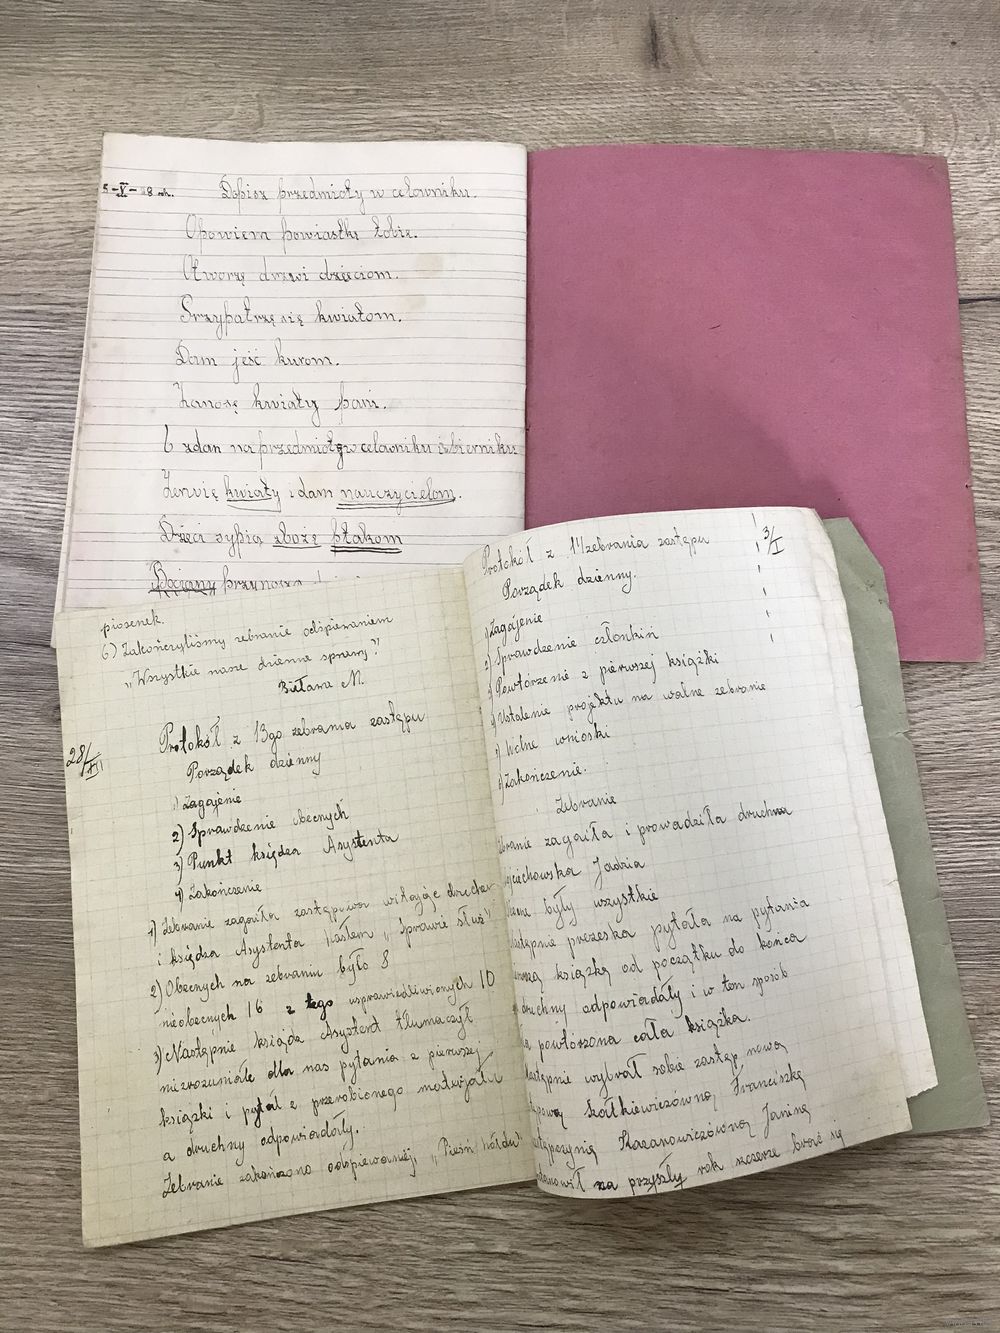 5-V-8 rok.
Dopisz przedmioty w celowniku.
Opowiem powiastkę Tobie.
Otworzę drzwi dzieciom.
Przypatrzę się kwiatom.
Dam jeść kurom.
Zanoszę kwiaty pani.
6 zdan na przedmioty w celowniku i bierniku
Zerwię kwiaty i dam nauczycielom.
Dzieci sypią zboże ptakom
Bociany przynoszą
piosenek.
6) Zakończyliśmy zebranie odśpiewaniem
„Wszystkie nasze dzienne sprawy"
M.
28/XII
Protokół z 13go zebrania zastępu
Porządek dzienny
1) Zagajenie
2) Sprawdzenie obecnych
3) Punkt księdza Asystenta
4) Zakończenie
1) Zebranie zagaiła zastępowa witając druchen
i księdza Asystenta hasłem „Sprawie służ"
2) Obecnych na zebraniu było 8
nieobecnych 16 z tego usprawiedliwionych 10
3) Następnie ksiądz Asystent tłumaczył
niezrozumiałe dla nas pytania z pierwszej
książki i pytał z przerobionego materjału
a druchny odpowiadały.
Zebranie zakończono odśpiewaniem „Pieśń hołdu"
3/I
Protokół z 14 zebrania zastępu
Porządek dzienny.
1) Zagajenie
2) Sprawdzenie członkiń
3) Powtórzenie z pierwszej książki
4) Ustalenie projektu na walne zebranie
5) Wolne wnioski
6) Zakończenie.
Zebranie
zagaiła i prowadziła druchna
Jadzia
były wszystkie
prezeska pytała na pytania
książką od początku do końca
druchny odpowiadały i w ten sposób
powtórzona cała książka.
wybrał sobie zastęp nową
Żółkiewiczówną Franciszkę
Janinę
za przyszły rok szczerze brać się